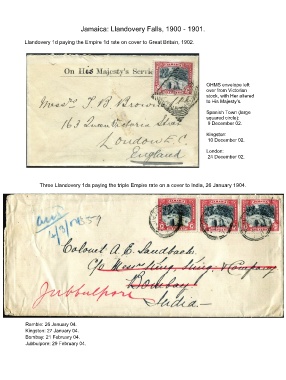 Jamaica: Llandovery Falls, 1900 - 1901.
Llandovery 1d paying the Empire 1d rate on cover to Great Britain, 1902.
On His Majesty's Service
Messrs T. B. Browne
163 Queen Victoria Street
London E.C.
England
OHMS envelope left
over from Victorian
stock, with Her altered
to His Majesty's.
Spanish Town (large
squared circle):
9 December 02.
Kingston:
10 December 02.
London:
24 December 02.
Three Llandovery 1ds paying the triple Empire rate on a cover to India, 26 January 1904.
Colonel A. E. Sandbach
c/o Messrs King, King & Company
Bombay
Jubbulpore
India
Rumbo: 26 January 04.
Kingston: 27 January 04.
Bombay: 21 February 04.
Jubbulpore: 29 February 04.